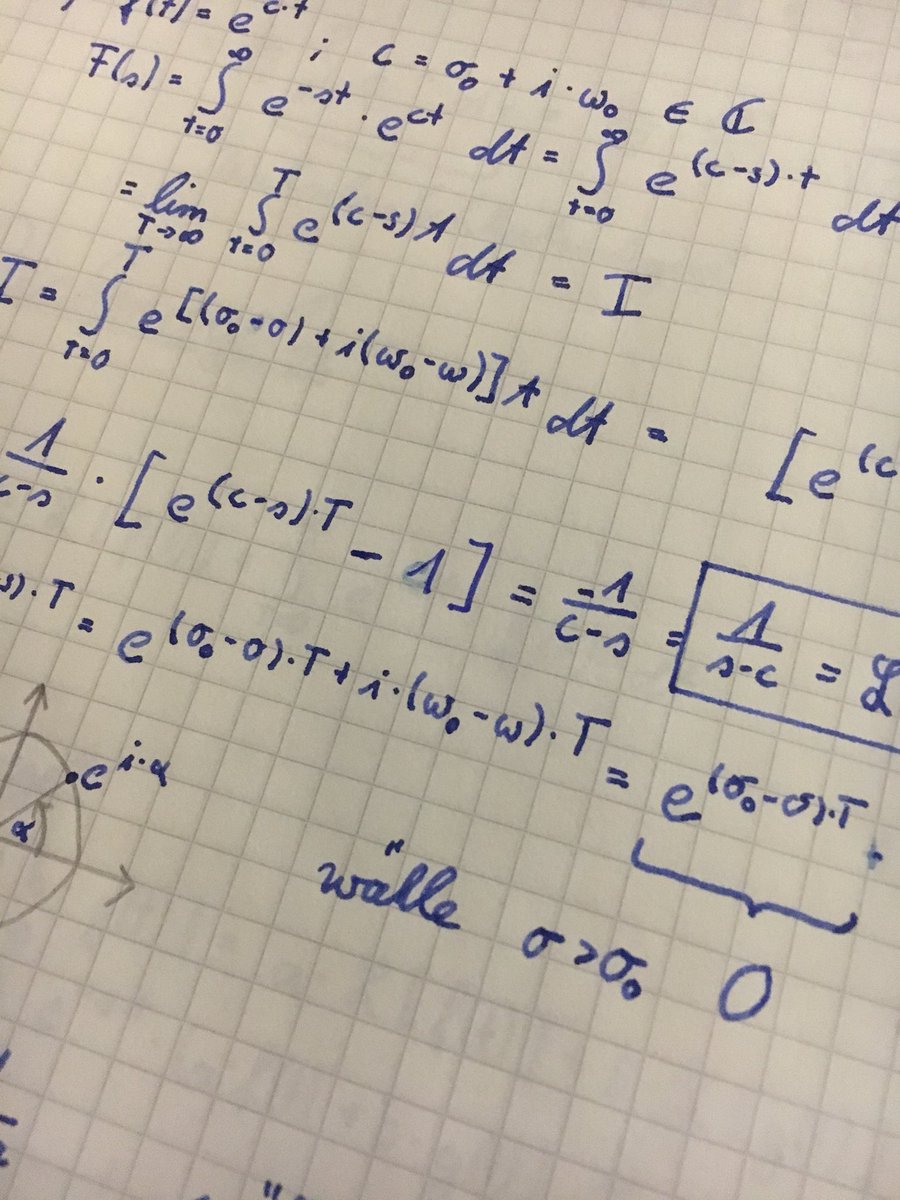 f(t) = e^{c·t} ; c = σ₀ + i·ω₀ ∈ ℂ
F(s) = ∫_{t=0}^{∞} e^{-st} · e^{ct} dt = ∫_{t=0}^{∞} e^{(c-s)·t} dt
= lim_{T→∞} ∫_{t=0}^{T} e^{(c-s)t} dt = I
I = ∫_{t=0}^{T} e^{[(σ₀-σ)+i(ω₀-ω)]t} dt = [e^{(c
1/(c-s) · [e^{(c-s)·T} - 1] = -1/(c-s) = 1/(s-c) = ℒ
s)·T = e^{(σ₀-σ)·T+i·(ω₀-ω)·T} = e^{(σ₀-σ)·T} ·
e^{i·α}
α
wähle σ>σ₀ 0